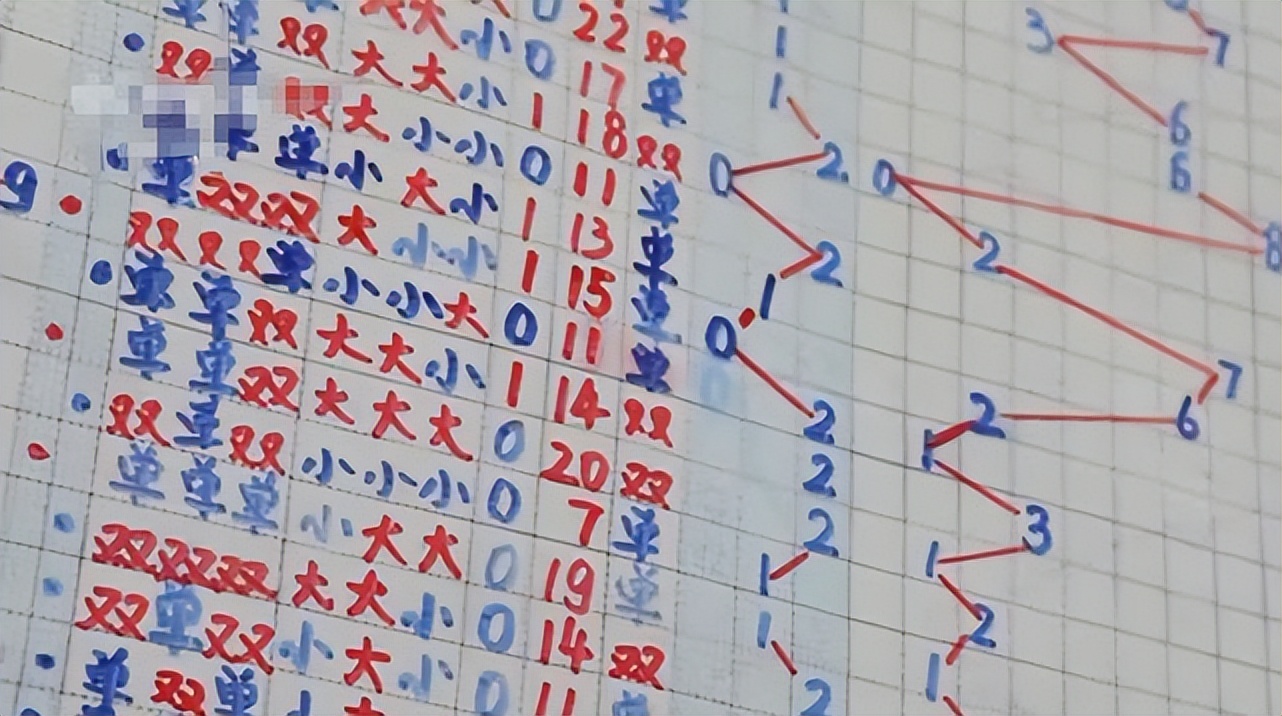 3 7
6
0 22 双 1 8
大大小 0 17 单 2 0
单 双大大小 1 18 双 0 2
双单双大小小 0 11 单 2 7
单单小大小 1 13 单 1 6
单双双大小小 1 15 单 0 2
9 双双单小小大 0 11 单 2 1
单单双大大小 1 14 双 2 3
单单双大大大 0 20 双 2 1
双单双小小小 0 7 单 1 2
单单单小大大 0 19 单 1 1
双双双大大小 0 14 双 2
双单双小大小 0 11 单
单双单